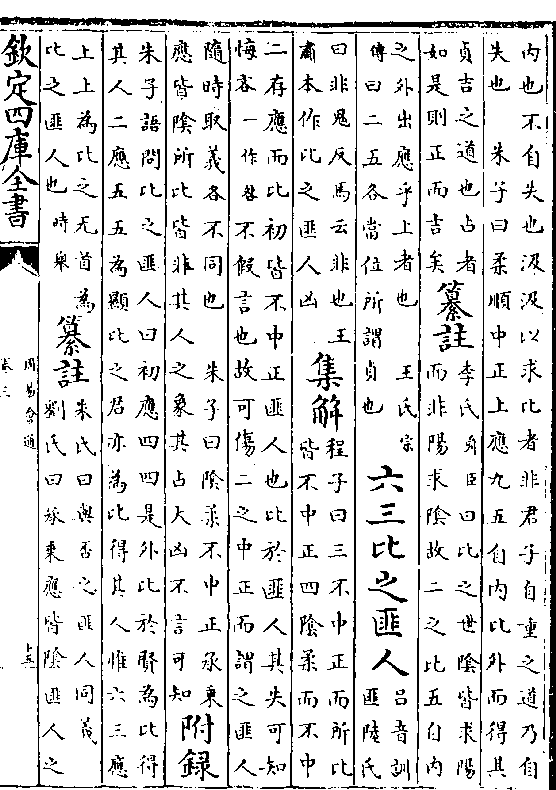 内也不自失也汲汲以求比者非君子自重之道乃自
失也　朱子曰柔順中正上應九五自内比外而得其
貞吉之道也占者
如是則正而吉矣
纂註
李氏舜臣曰比之世陰皆求陽
而非陽求陰故二之比五自内
之外出應乎上者也　王氏宗
傳曰二五各當位所謂貞也
六三比之匪人
吕音訓
匪陸氏
曰非鬼反馬云非也王
肅本作比之匪人凶
集解
程子曰三不中正而所比
皆不中正四陰柔而不中
二存應而比初皆不中正匪人也比於匪人其失可知
悔吝一作咎不假言也故可傷二之中正而謂之匪人
隨時取義各不同也　朱子曰陰柔不中正承乗
應皆陰所比皆非其人之象其占大凶不言可知
附録
朱子語問比之匪人曰初應四四是外比於賢為比得
其人二應五五為顯比之君亦為比得其人惟六三應
上上為比之无首為
比之匪人也　時舉
纂註
朱氏曰與否之匪人同義
劉氏曰承乗應皆陰匪人之
欽定四庫全書
周易會通
卷三